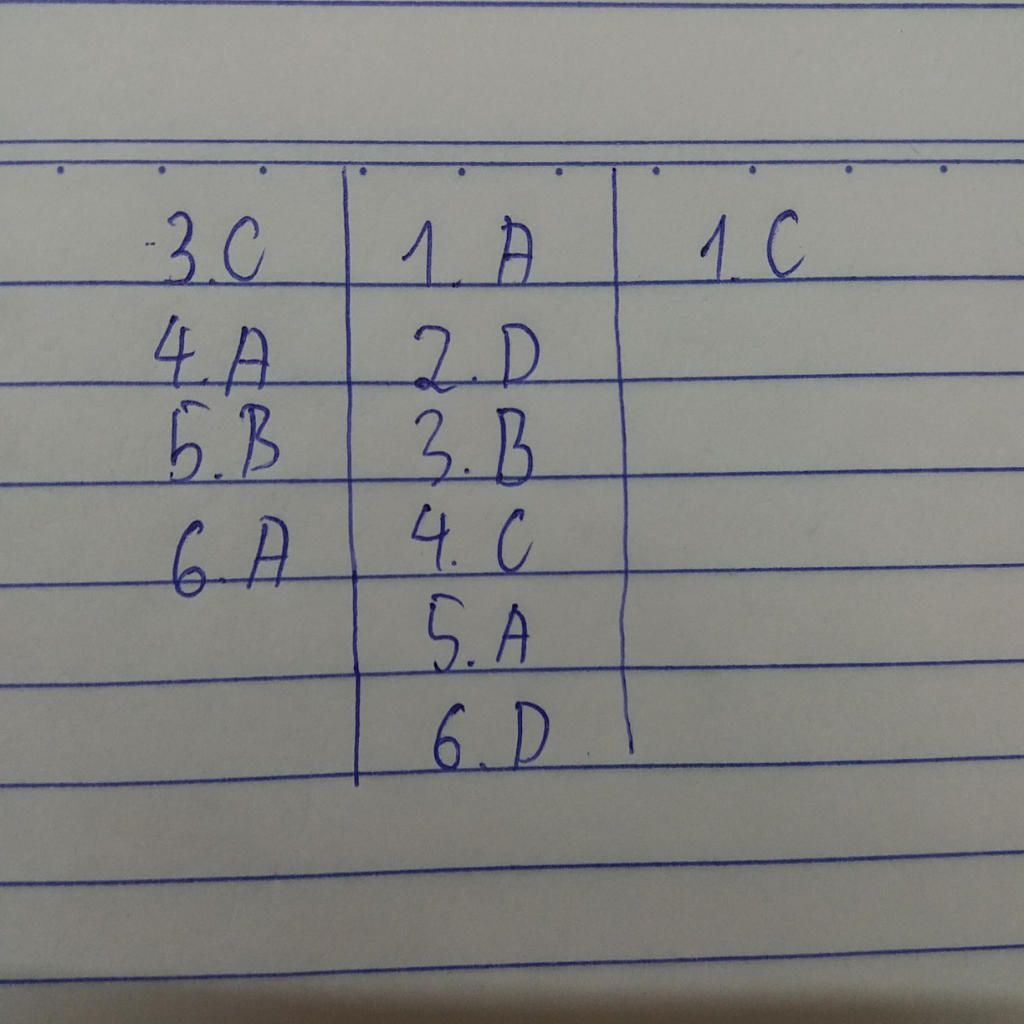 3.C 1. A 1. C
4.A 2.D
5.B 3.B
6.A 4. C
5.A
6.D